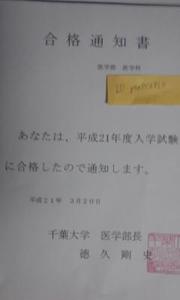 合格通知書
医学部 医学科
あなたは、平成21年度入学試験
に合格したので通知します。
平成21年 3月20日
千葉大学 医学部長
徳久剛史